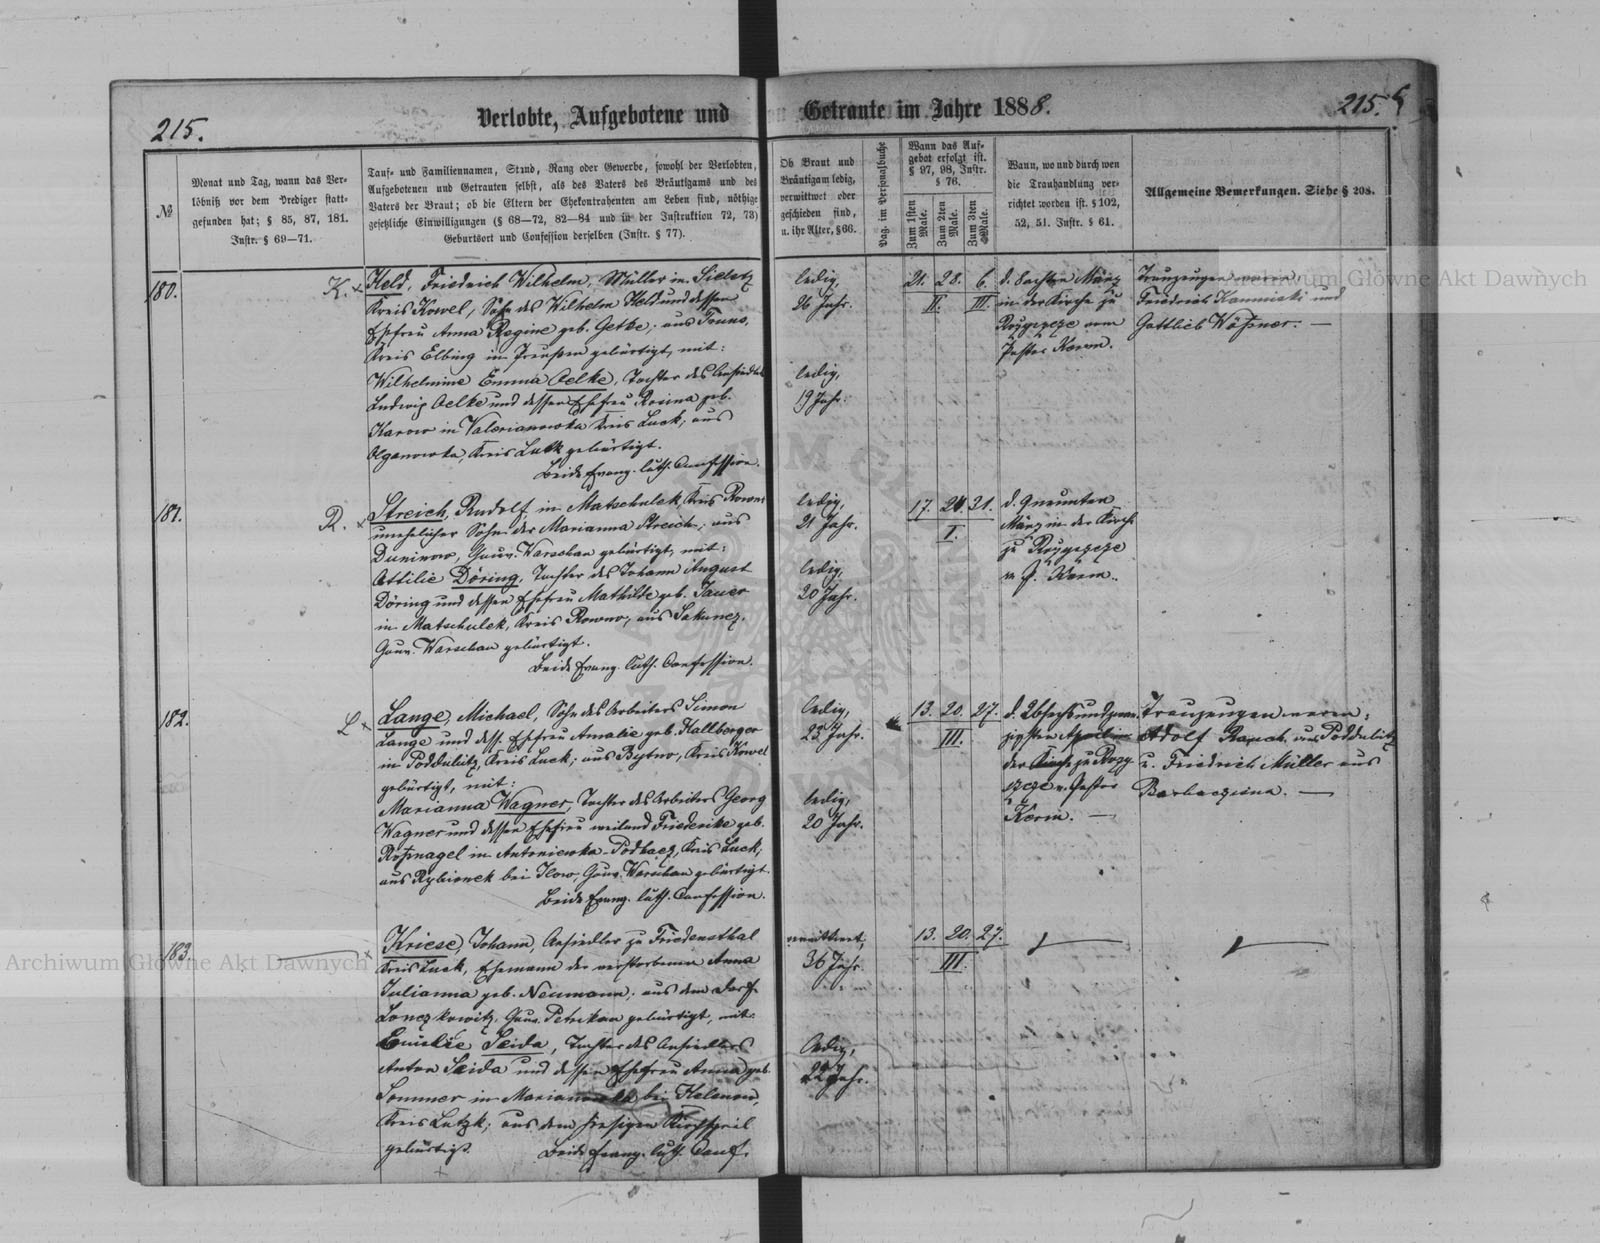 215.
Verlobte, Aufgebotene und
Getraute im Jahre 1888.
215.
№
Monat und Tag, wann das Ver-
löbniß vor dem Prediger statt-
gefunden hat; § 85, 87, 181.
Instr. § 69—71.
Tauf- und Familiennamen, Stand, Rang oder Gewerbe, sowohl der Verlobten,
Aufgebotenen und Getrauten selbst, als des Vaters des Bräutigams und des
Vaters der Braut; ob die Eltern der Ehekontrahenten am Leben sind, nöthige
gesetzliche Einwilligungen (§ 68—72, 82—84 und in der Instruktion 72, 73)
Geburtsort und Confession derselben (Instr. § 77).
Ob Braut und
Bräutigam ledig,
verwittwet oder
geschieden sind,
u. ihr Alter, §66.
Pag. im Personalbuche
Wann das Auf-
gebot erfolgt ist.
§ 97, 98, Instr.
§ 76.
Zum 1sten Male.
Zum 2ten Male.
Zum 3ten Male.
Wann, wo und durch wen
die Trauhandlung ver-
richtet worden ist. § 102,
52, 51. Instr. § 61.
Allgemeine Bemerkungen. Siehe § 208.
180.
K. x
Held, Friedrich Wilhelm, Müller in
Kreis Kowel, Sohn des Wilhelm Held und dessen
Ehefrau Anna Regine geb. Getke; aus
Kreis Elbing in Preußen gebürtigt, mit:
Wilhelmine Emma Oelke, Tochter des Ansiedlers
Ludwig Oelke und dessen Ehefrau Rosina geb.
Karow in Valerianowka Kreis Luck; aus
Olganowka, Kreis Luck gebürtigt.
Beide Evang. luth. Confession.
ledig,
26 Jahr.
ledig,
19 Jahr.
21. 28. 6.
II. III.
d. Sechsten März
in der Kirche zu
Rozyszcze vom
Pastor Kerm.
Trauzeugen waren
Friedrich Kaminski und
Gottlieb Wößner. —
181.
R. x
Streich, Rudolf, in Matschulek, Kreis Rowno
unehelicher Sohn der Marianna Streich; aus
Duninow, Gouv. Warschau gebürtigt, mit:
Ottilie Döring, Tochter des Johann August
Döring und dessen Ehefrau Mathilde geb. Jauer
in Matschulek, Kreis Rowno, aus
Gouv. Warschau gebürtigt.
Beide Evang. luth. Confession.
ledig,
21 Jahr.
ledig,
20 Jahr.
17. 24. 31.
I.
d. Neunten
März in der Kirche
zu Rozyszcze
v. P. Kerm.
182.
L x
Lange, Michael, Sohn des Arbeiters Simon
Lange und dess. Ehefrau Amalie geb. Kallberger
in Poddubitz, Kreis Luck; aus Bytno, Kreis Kowel
gebürtigt, mit:
Marianna Wagner, Tochter des Arbeiters Georg
Wagner und dessen Ehefrau weiland Friederike geb.
Roßnagel in Antoniewka-Podhacz, Kreis Luck;
aus Rybionek bei Ilow, Gouv. Warschau gebürtigt.
Beide Evang. luth. Confession.
ledig,
23 Jahr.
ledig,
20 Jahr.
13. 20. 27.
III.
d. Sechsundzwan-
zigsten April in
der Kirche zu Rozy-
szcze v. Pastor
Kerm. —
Trauzeugen waren:
Adolf Rauch aus Poddubitz
u. Friedrich Müller aus
—
183.
x
Kriese, Johann, Ansiedler zu Friedensthal
Kreis Luck, Ehemann der verstorbenen Anna
Julianna geb. Neumann; aus dem Dorf
Gouv. Petrikau gebürtigt, mit:
Emilie Seida, Tochter des Ansiedlers
Anton Seida und dessen Ehefrau Anna geb.
Sommer in Marianowka bei Helenow,
Kreis Lutzk; aus dem hiesigen Kirchspiel
gebürtigt.
Beide Evang. luth. Conf.
verwittwet,
36 Jahr
ledig,
22 Jahr.
13. 20. 27.
III.
Archiwum Główne Akt Dawnych
Archiwum Główne Akt Dawnych